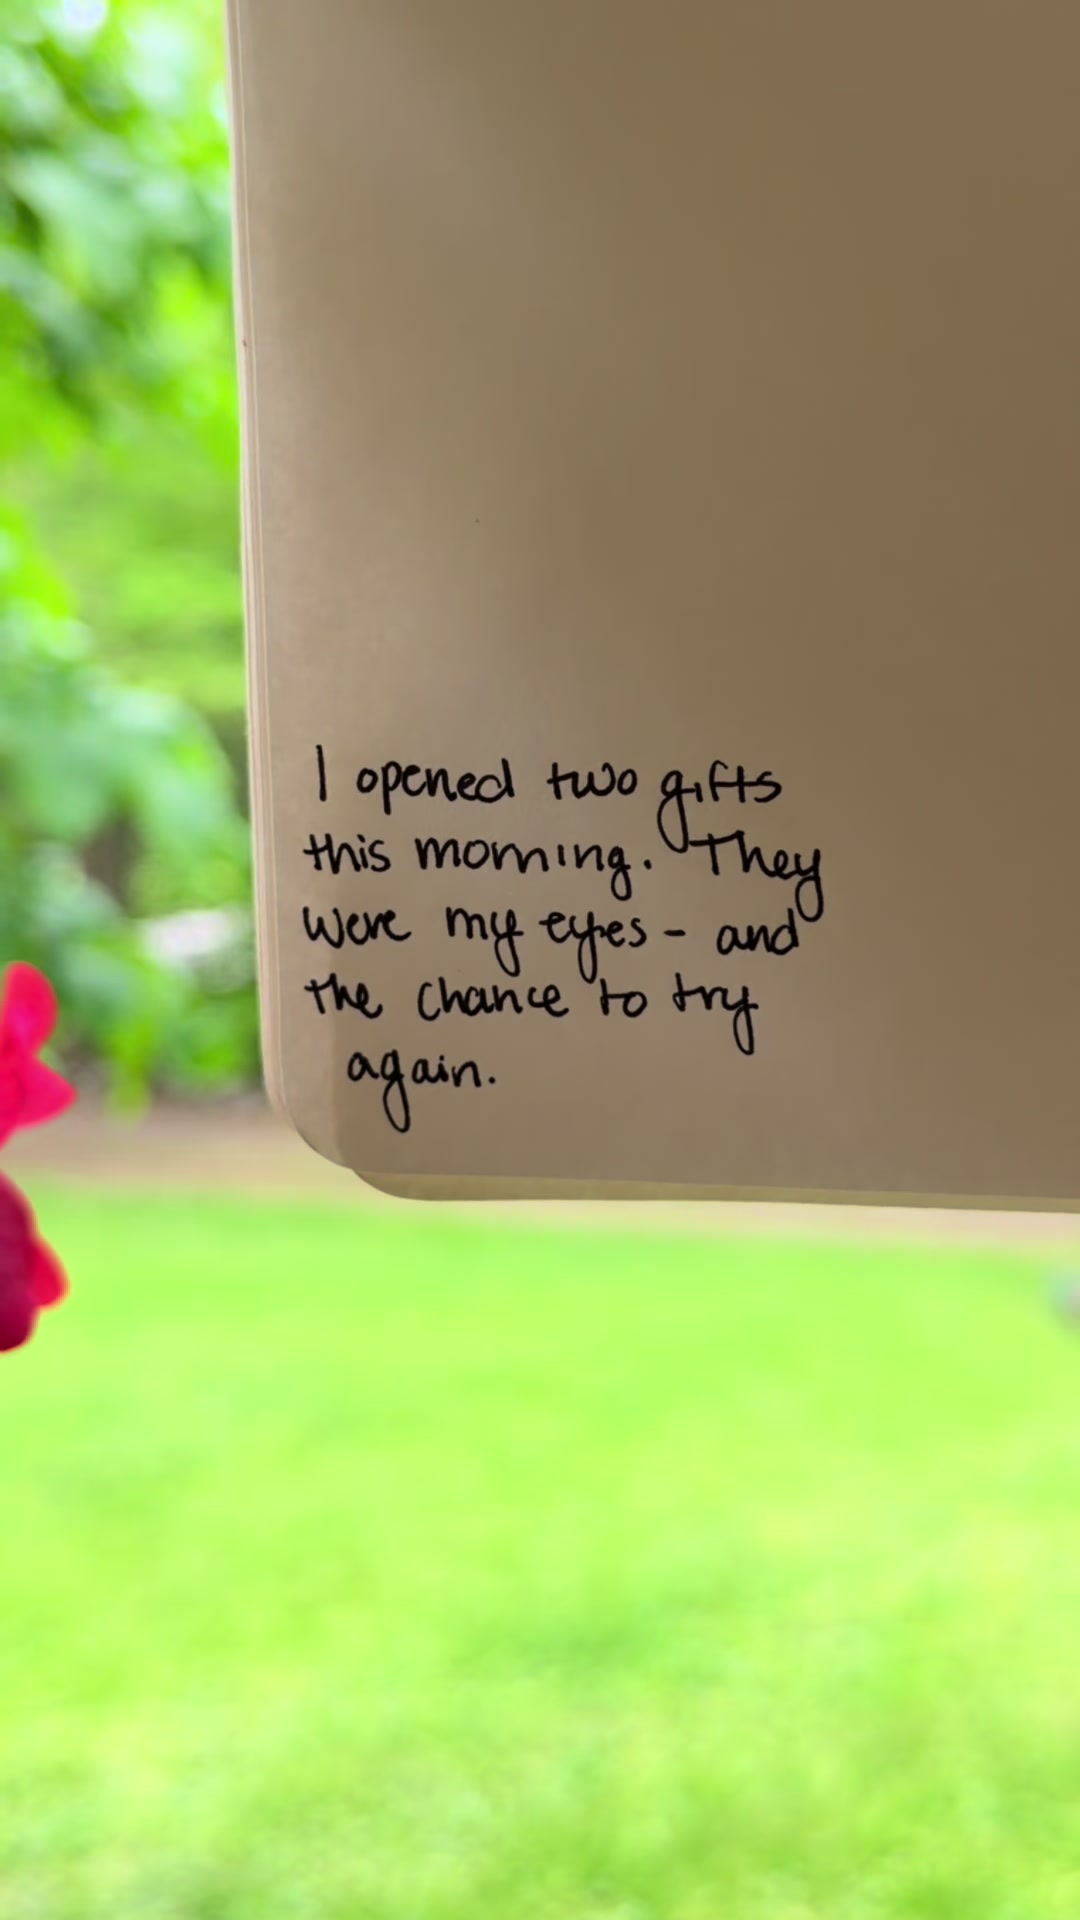 I opened two gifts
this morning. They
were my eyes - and
the chance to try
again.